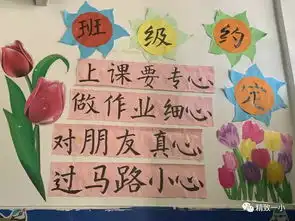 班级约定
上课要专心
做作业细心
对朋友真心
过马路小心
精致一小